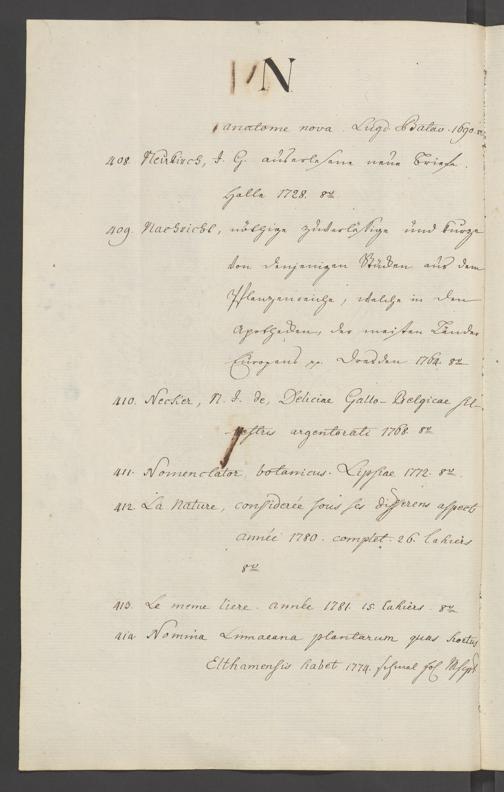 N
anatome nova. Lugd Batav. 1690. 8vo
408. Neukirch, J. G. auserlesene neue Briefe.
Halle 1728. 8vo
409. Nachricht, nöthige zuverlässige und kurze
von denjenigen Stücken aus dem
Pflanzenreiche, welche in den
Apotheken, der meisten Länder
Europens pp. Dresden 1764. 8vo
410. Necker, N. J. de, Deliciae Gallo-Belgicae sil-
vestris argentorati 1768. 8vo
411. Nomenclator botanicus. Lipsiae 1772. 8vo.
412. La Nature, considerée sous ses differens aspects
année 1780. complet. 26. Cahiers
8vo
413. Le meme livre. année 1781. 15. Cahiers. 8vo
414. Nomina Linnaeana plantarum quas hortus
Elthamensis habet 1774. schmal fol. Mscpt